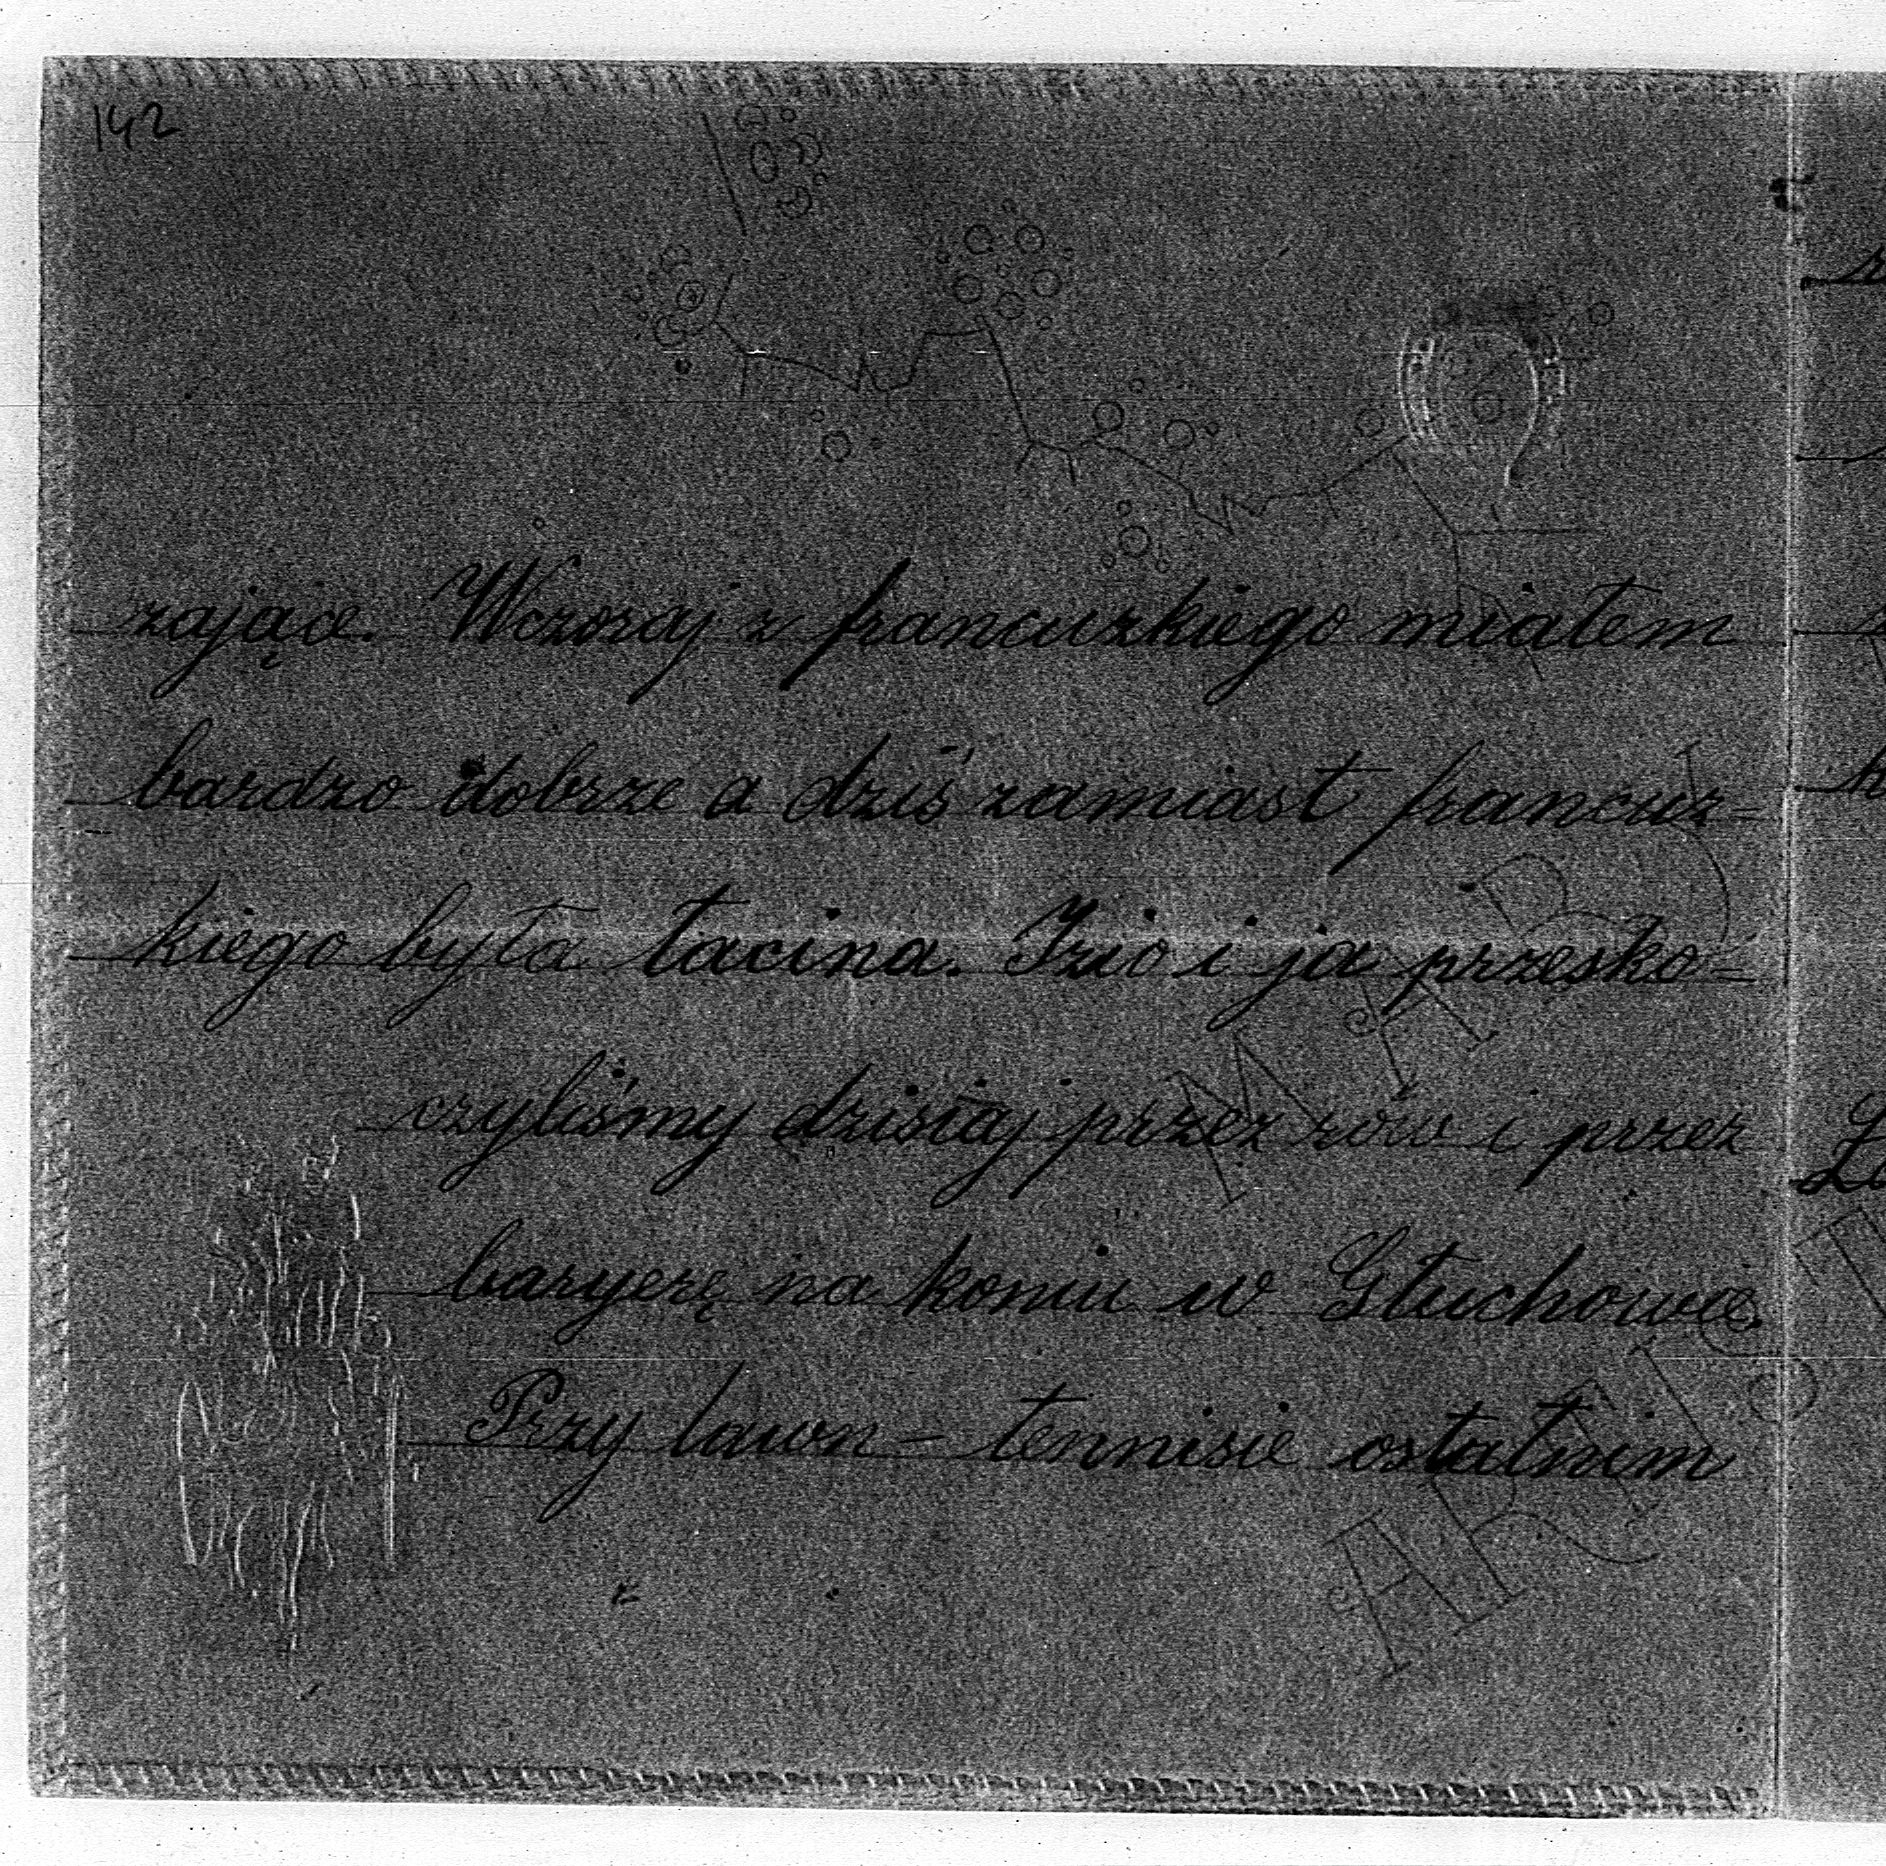 142
zające. Wczoraj z francuzkiego miałem
bardzo dobrze a dziś zamiast francuz=
kiego była łacina. Izio i ja przesko=
czyliśmy dzisiaj przez rów i przez
baryerę na koniu w Głuchowie.
Przy lawn-tennisie ostatnim